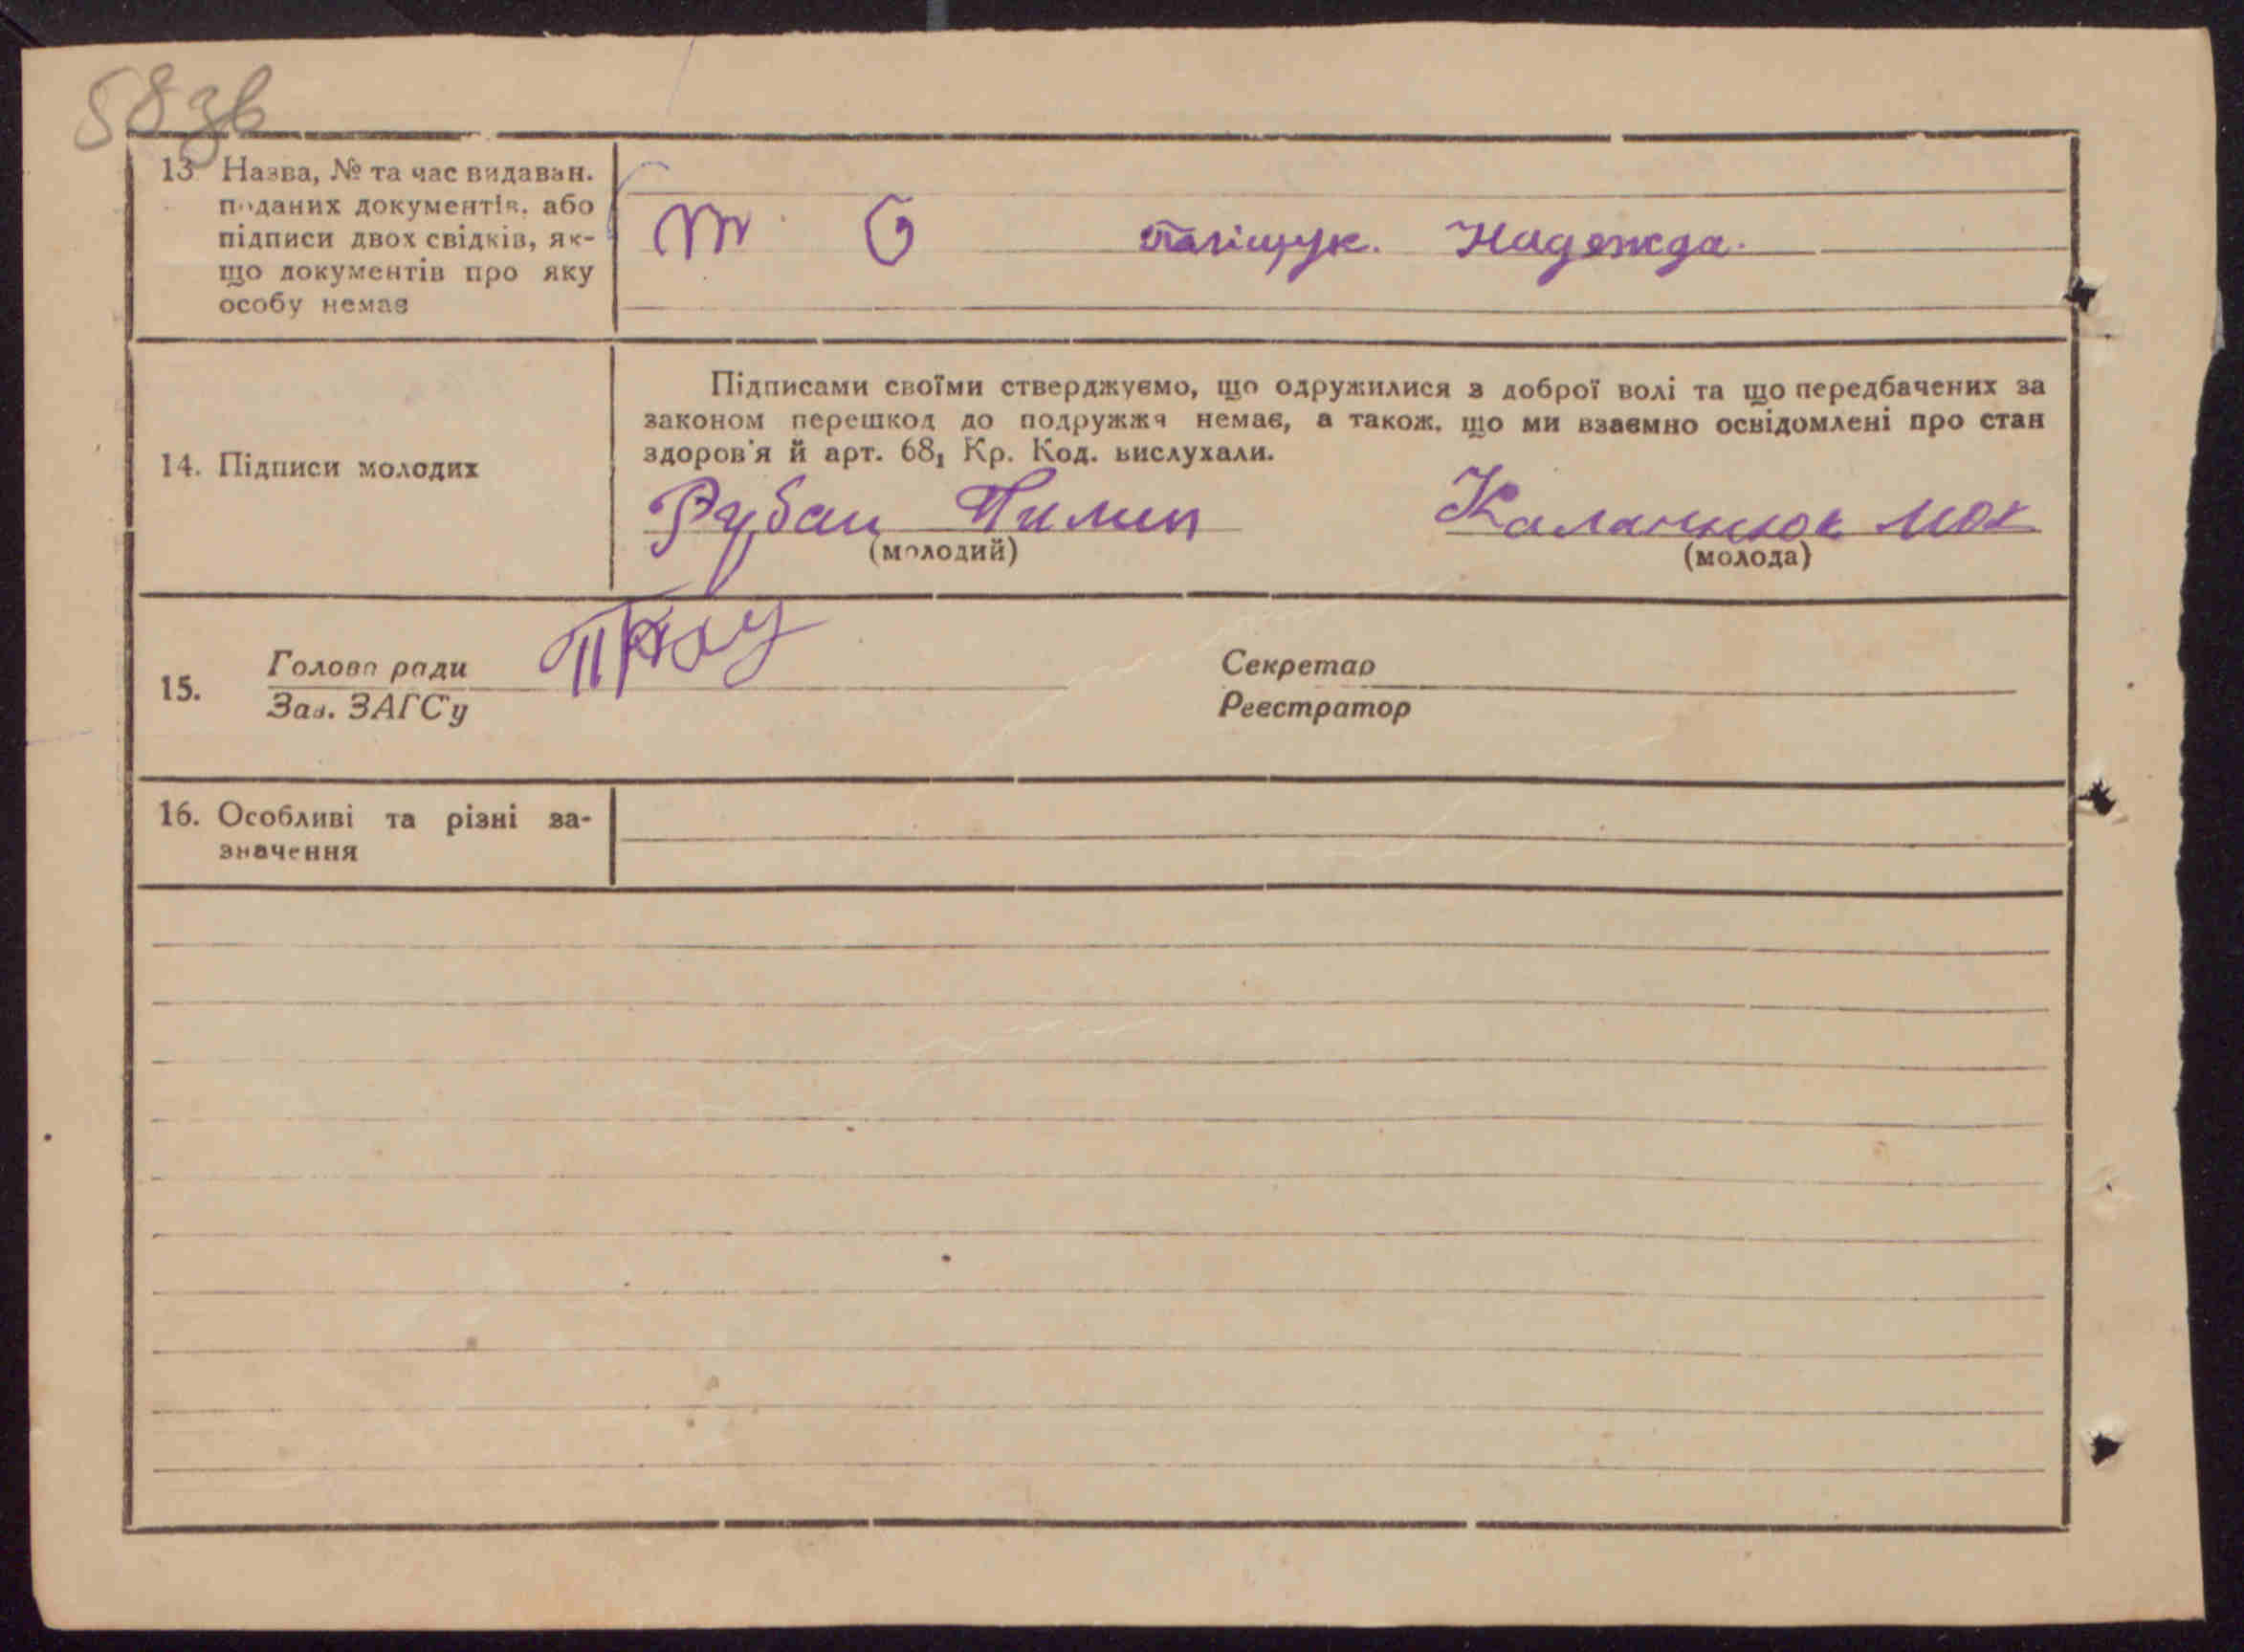 58зв
13 Назва, № та час видаван.
поданих документів, або
підписи двох свідків, як-
що документів про яку
особу немає
т Паліщук. Надежда.
14. Підписи молодих
Підписами своїми стверджуємо, що одружилися з доброї волі та що передбачених за
законом перешкод до подружжя немає, а також, що ми взаємно освідомлені про стан
здоров'я й арт. 68, Кр. Код. вислухали.
Рубан Пилип
(молодий)
Каланюк
(молода)
15.
Голова ради
Зав. ЗАГСу
Секретар
Реєстратор
16. Особливі та різні за-
значення